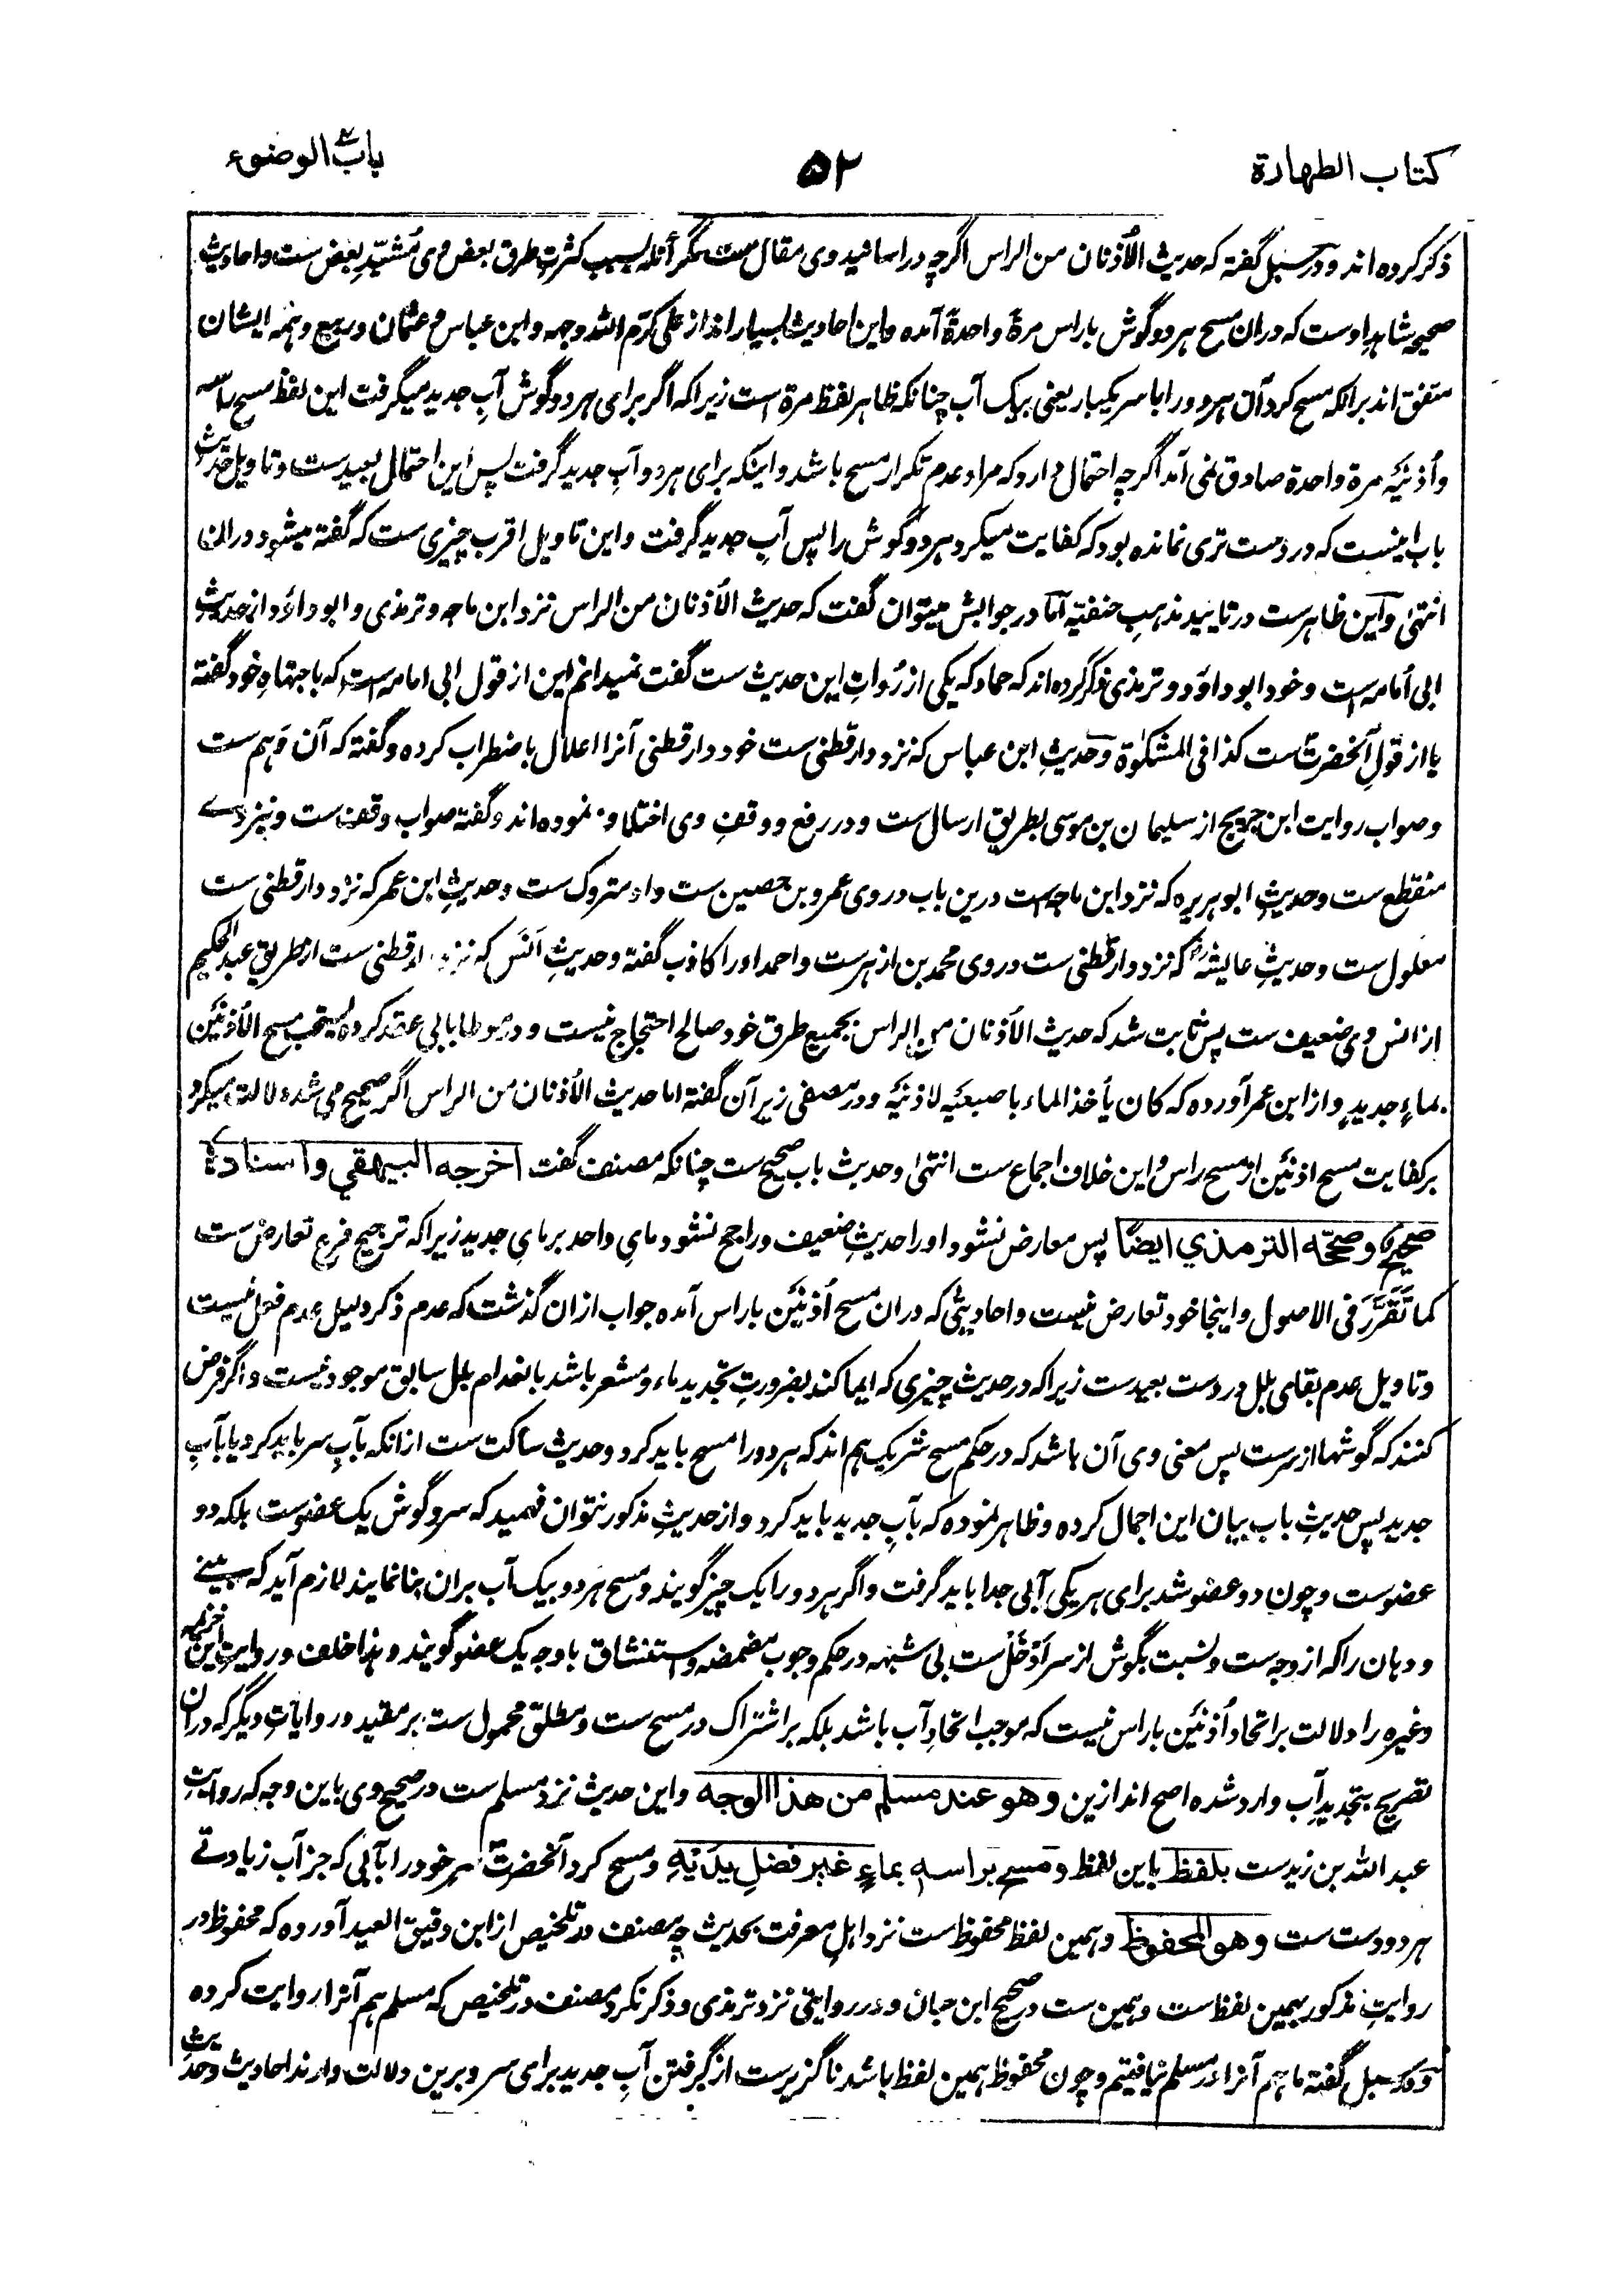 كتاب الطهارة
۵۲
باب الوضوء
ذکر کرده اند و در سبل گفته که حدیث الأذنان من الراس اگرچه در اسانید وی مقال ست مگر آنکه بسبب کثرتِ طرق بعض وی مُشیّدِ بعض ست و احادیث
صحیحه شاهدِ اوست که دران مسح هر دو گوش با راس مرةً واحدةً آمده و این احادیث بسیار اند از علی کرّم الله وجهه و ابن عباس و عثمان و ربیع و همه ایشان
متفق اند بر آنکه مسح کرد آن هر دو را با سر یکبار یعنی بیک آب چنانکه ظاهر لفظ مرة است زیرا که اگر برای هر دو گوش آبِ جدید میگرفت این لفظ مسح راسه
و أذنیه مرة واحدة صادق نمی آمد اگرچه احتمال دارد که مراد عدم تکرار مسح باشد و اینکه برای هر دو آبِ جدید گرفت پس این احتمال بعید ست و تاویل حدیث
باب اینست که در دست تری نمانده بود که کفایت میکرد هر دو گوش را پس آبِ جدید گرفت و این تاویل اقرب چیزی ست که گفته میشود دران
انتهیٰ و این ظاهرست در تایید مذهبِ حنفیّه اما در جوابش میتوان گفت که حدیث الأذنان من الراس نزد ابن ماجه و ترمذی و ابو داؤد از حدیث
ابی أمامه است و خود ابو داؤد و ترمذی ذکر کرده اند که حماد که یکی از رُواتِ این حدیث ست گفت نمیدانم این از قول ابی امامه است که باجتهادِ خود گفته
یا از قولِ آنحضرت ست کذا فی المشکوٰة و حدیثِ ابن عباس که نزد دارقطنی ست خود دارقطنی آنرا اعلال باضطراب کرده و گفته که آن وَهم ست
و صواب روایت ابن جریج از سلیمان بن موسی بطریق ارسال ست و در رفع و وقفِ وی اختلاف نموده اند و گفته صواب وقف ست و نیز وے
منقطع ست و حدیثِ ابو هریره که نزد ابن ماجه است درین باب در وی عمرو بن حصین ست و او متروک ست و حدیثِ ابن عمر که نزد دارقطنی ست
معلول ست و حدیثِ عایشه که نزد دارقطنی ست در وی محمد بن ازهر ست و احمد او را کاذب گفته و حدیثِ اَنَس که نزد دارقطنی ست از طریق عبد الحکیم
از انس وی ضعیف ست پس ثابت شد که حدیث الأذنان من الراس بجمیع طرق خود صالح احتجاج نیست و در موطا بابی عقد کرده یستحب مسح الأذنین
بماءٍ جدیدٍ و از ابن عمر آورده که کان یأخذ الماء باصبعیه لاذنیه و در مصفی زیر آن گفته اما حدیث الأذنان من الراس اگر صحیح می شد دلالت میکرد
بر کفایت مسح اذنین از مسح راس و این خلاف اجماع ست انتهیٰ و حدیث باب صحیح ست چنانکه مصنف گفت اخرجه البیهقي واسناده
صحیح وصححه الترمذي ایضًا پس معارض نشود او را حدیثِ ضعیف و راجح نشود مای واحد بر مای جدید زیرا که ترجیح فرع تعارض ست
کما تَقَرَّرَ فی الاصول و اینجا خود تعارض نیست و احادیثی که دران مسح أذنین با راس آمده جواب ازان گذشت که عدم ذکر دلیل عدم فعل نیست
و تاویل عدم بقای بلل در دست بعیدست زیرا که در حدیث چیزی که ایما کند بضرورتِ تجدید ماء و مشعر باشد بانعدام بلل سابق موجود نیست و اگر فرض
کنند که گوشها از سرست پس معنی وی آن باشد که در حکم مسح شریک هم اند که هر دو را مسح باید کرد و حدیث ساکت ست ازانکه بآبِ سر باید کرد یا بآبِ
جدید پس حدیثِ باب بیان این اجمال کرده و ظاهر نموده که بآبِ جدید باید کرد و از حدیثِ مذکور نتوان فهمید که سر و گوش یک عضوست بلکه دو
عضوست و چون دو عضو شد برای هر یکی آبی جدا باید گرفت و اگر هر دو را یک چیز گویند و مسح هر دو بیک آب بران بنا نمایند لازم آید که بینے
و دهان را که از وجه ست و نسبت بگوش از سر اَدْخَلْ ست بی شبهه در حکم وجوب مضمضه و استنشاق با وجه یک عضو گویند و هذا خلف و روایت ابن خزیمه
و غیره را دلالت بر اتحاد أذنین با راس نیست که موجب اتحادِ آب باشد بلکه بر اشتراک در مسح ست و مطلق محمول ست بر مقید و روایاتِ دیگر که دران
تصریح بتجدیدِ آب وارد شده اصح اند ازین وهو عند مسلم من هذا الوجه و این حدیث نزد مسلم ست در صحیح وی باین وجه که روایت
عبد الله بن زیدست بلفظ باین لفظ ومسح براسه بماءٍ غیر فضلِ یدیه و مسح کرد آنحضرت سر خود را بآبی که جز آب زیادتے
هر دو دست ست وهو المحفوظ و همین لفظ محفوظ ست نزد اهلِ معرفت بحدیث چه مصنف در تلخیص از ابن دقیق العید آورده که محفوظ در
روایتِ مذکور بهمین لفظ ست و همین ست در صحیح ابن حبان و در روایتی نزد ترمذی و ذکر نکرد مصنف در تلخیص که مسلم هم آنرا روایت کرده
و در سبل گفته ما هم آنرا در مسلم نیافتیم و چون محفوظ همین لفظ باشد ناگزیر ست از گرفتن آبِ جدید برای سر و برین دلالت دارند احادیث و حدیث